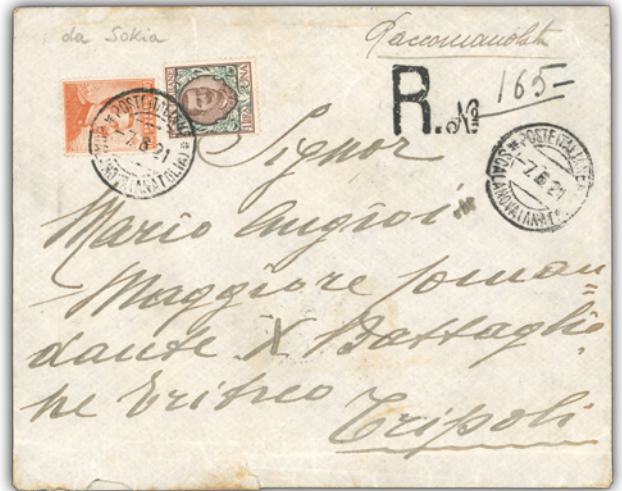 da Sokia
Raccomandata
R. No 165-
UNA
POSTE ITALIANE
-7.6.21
SCALANOVA (ANATOLIA)
POSTE ITALIANE
-7.6.21
SCALANOVA (ANAT
Signor
Mario Angioi
Maggiore Coman=
dante X Battaglio
ne Eritreo
Tripoli